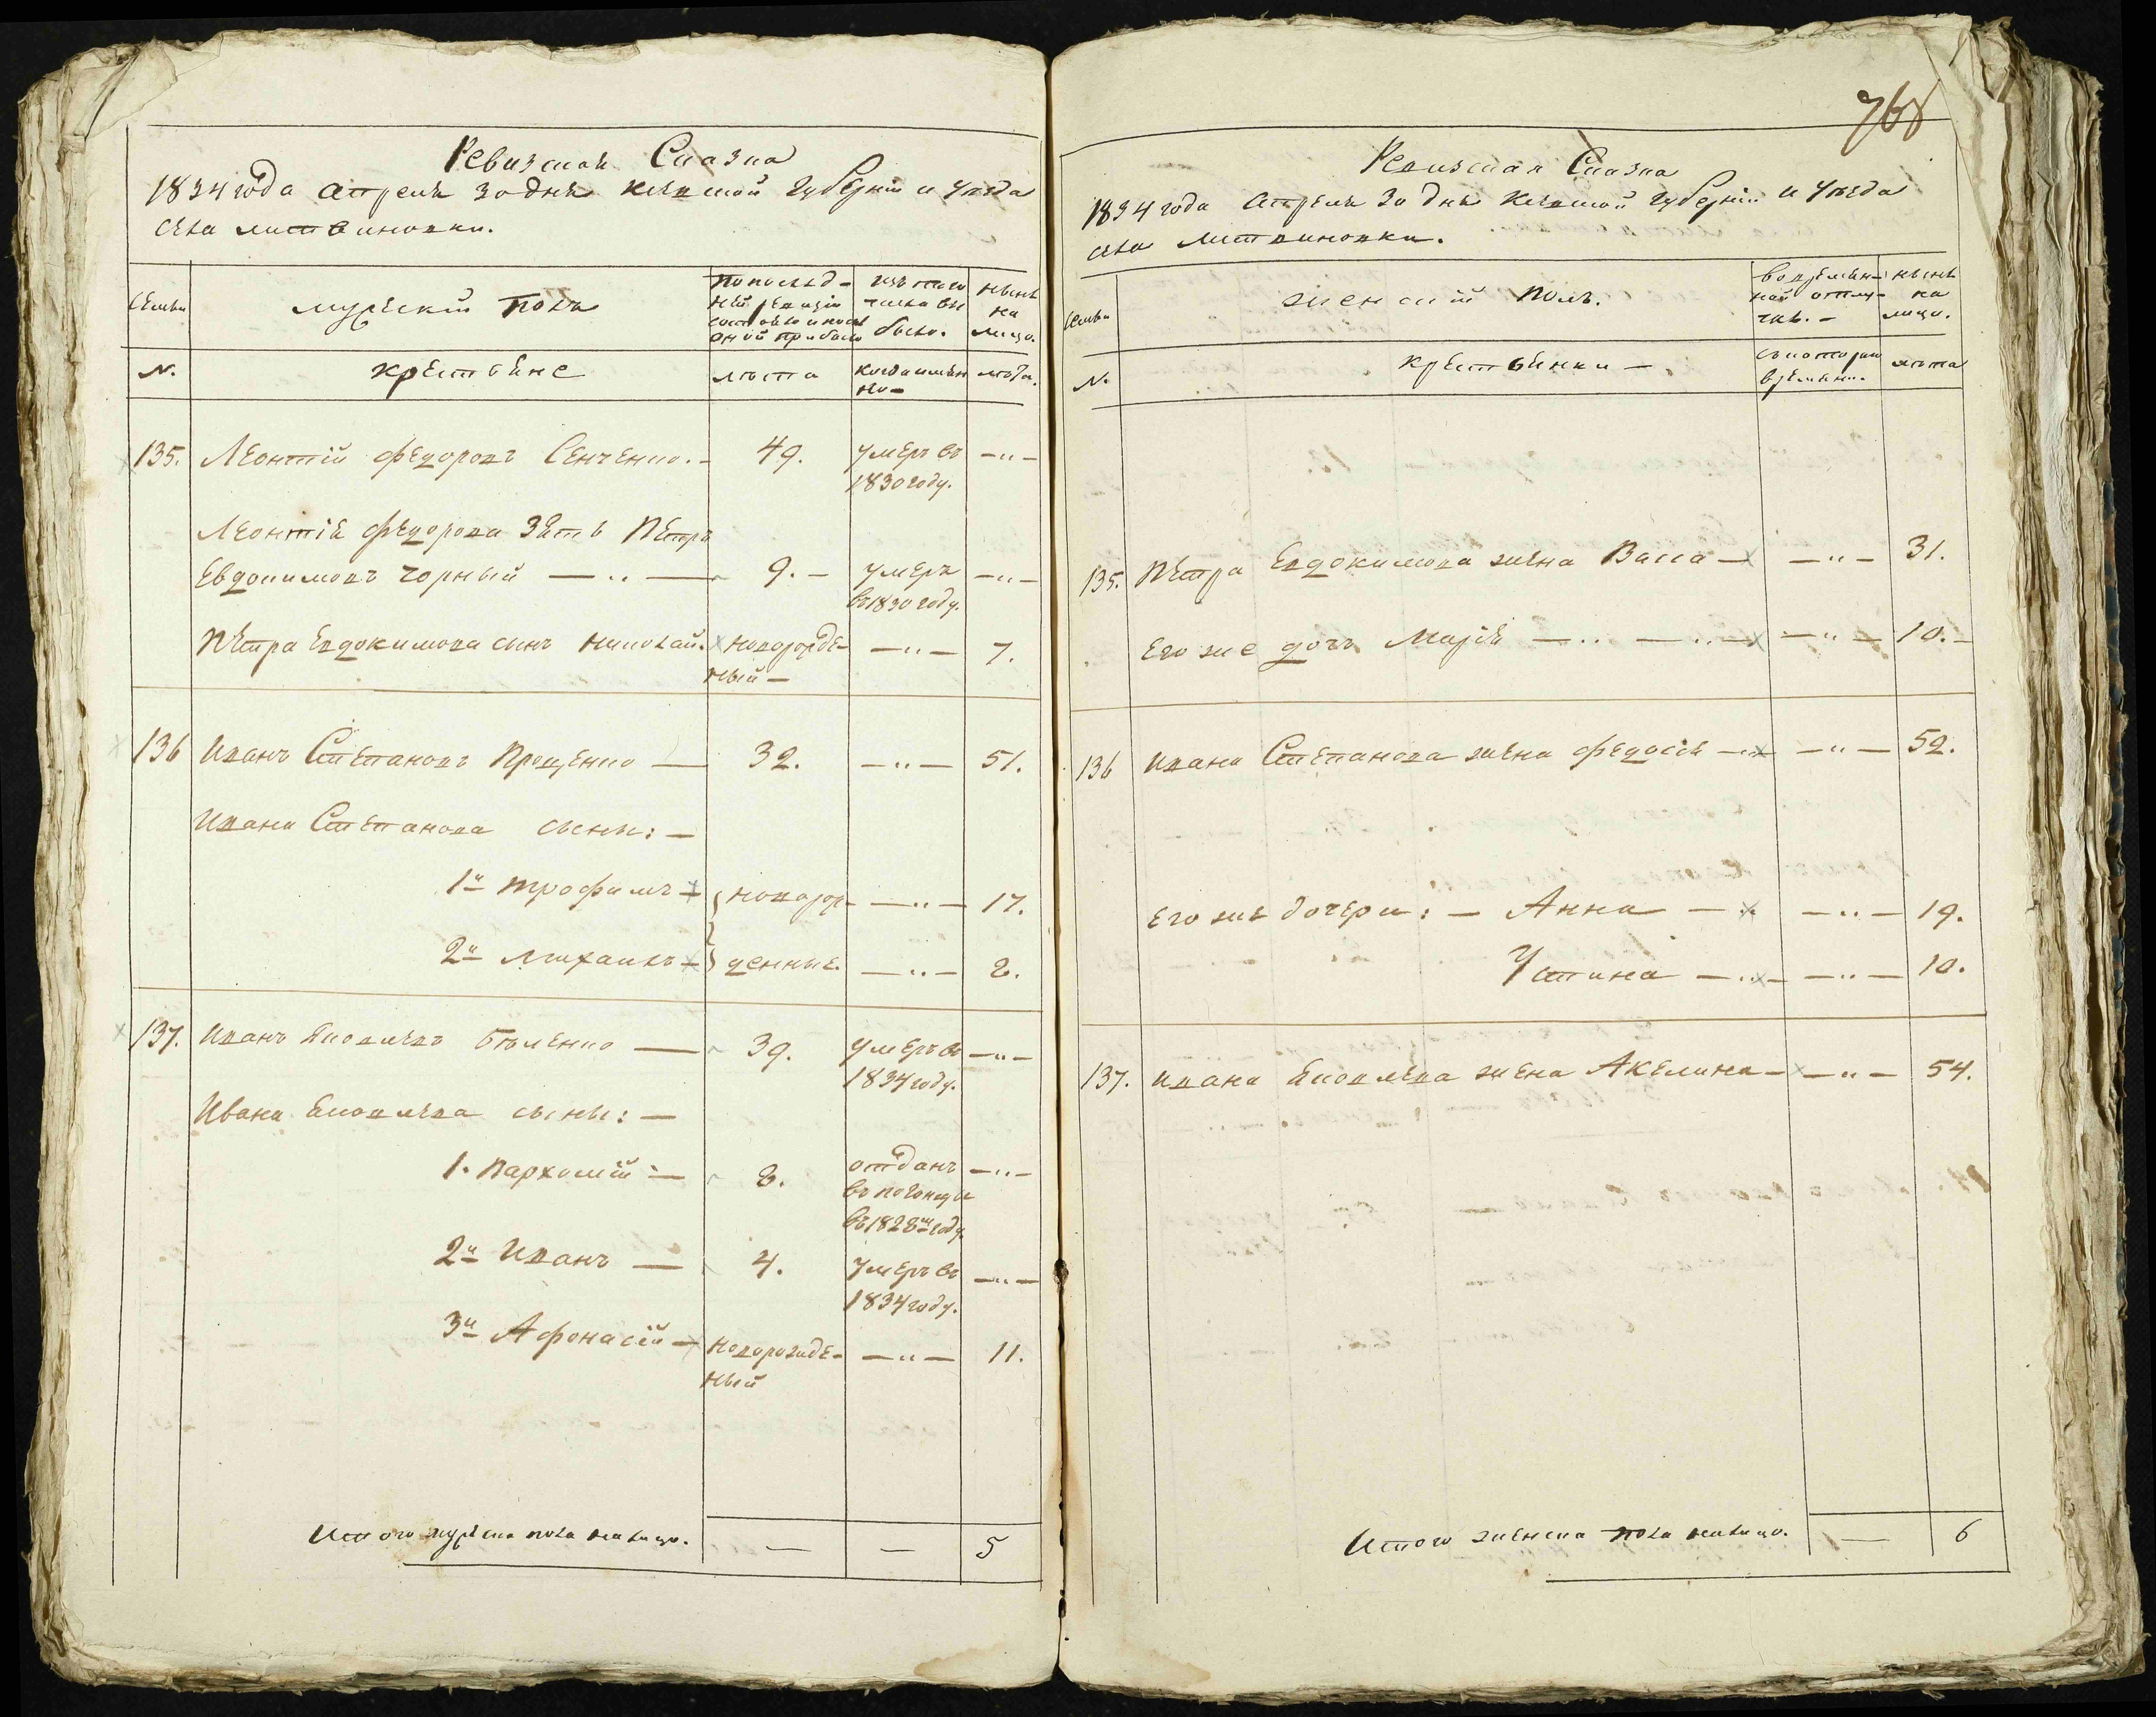 768
Ревизская Сказка
1834 года Апреля 30 дня Киевской Губернїи и Уезда
села Литвиновки.
Семьи
мужескїй полъ
По послед-
ней ревизїи
состояло и после
оной прибыло
изъ того
числа вы
было.
ныне
на
лицо.
N.
крестьяне
лета
когда имен
но-
лета.
135. Леонтїй Федоровъ Сенченко. - 49. умеръ въ - " -
1830 году.
Леонтїя Федорова Зять Петръ
Евдокимовъ Чорный — " — 9. - умеръ - " -
въ 1830 году.
Петра Евдокимова сынъ Николай. новорожде- - " - 7.
ный -
136 Иванъ Степановъ Проценко — 32. - " - 51.
Ивана Степанова сыны: -
1й Трофимъ - новорож- - " - 17.
2й Михаилъ - денные. - " - 8.
137. Иванъ Яковлевъ Беленко — 39. умеръ въ - " -
1834 году.
Ивана Яковлева сыны: -
1. Пархомїй - 8. отданъ - " -
въ погонщи
въ 1828м году.
2й Иванъ — 4. умеръ въ - " -
1834 году.
3й Афонасїй - новорожде- - " - 11.
ный
Итого мужеска пола налицо. — — 5
Ревизская Сказка
1834 года Апреля 30 дня Киевской Губернїи и Уезда
села Литвиновки.
Семьи
женскїй полъ.
во времен-
ной отлу-
чке. -
ныне
на
лицо.
N.
крестьянки -
съ котораго
времени.
лета
135. Петра Евдокимова жена Васса - - " - 31.
Его же дочь Марїя - " - " - - " - 10. -
136 Ивана Степанова жена Федосїя - - " - 52.
Его же дочери: - Анна - - " - 19.
Устина - " - - " - 10.
137. Ивана Яковлева жена Акелина - - " - 54.
Итого женска пола налицо. — 6